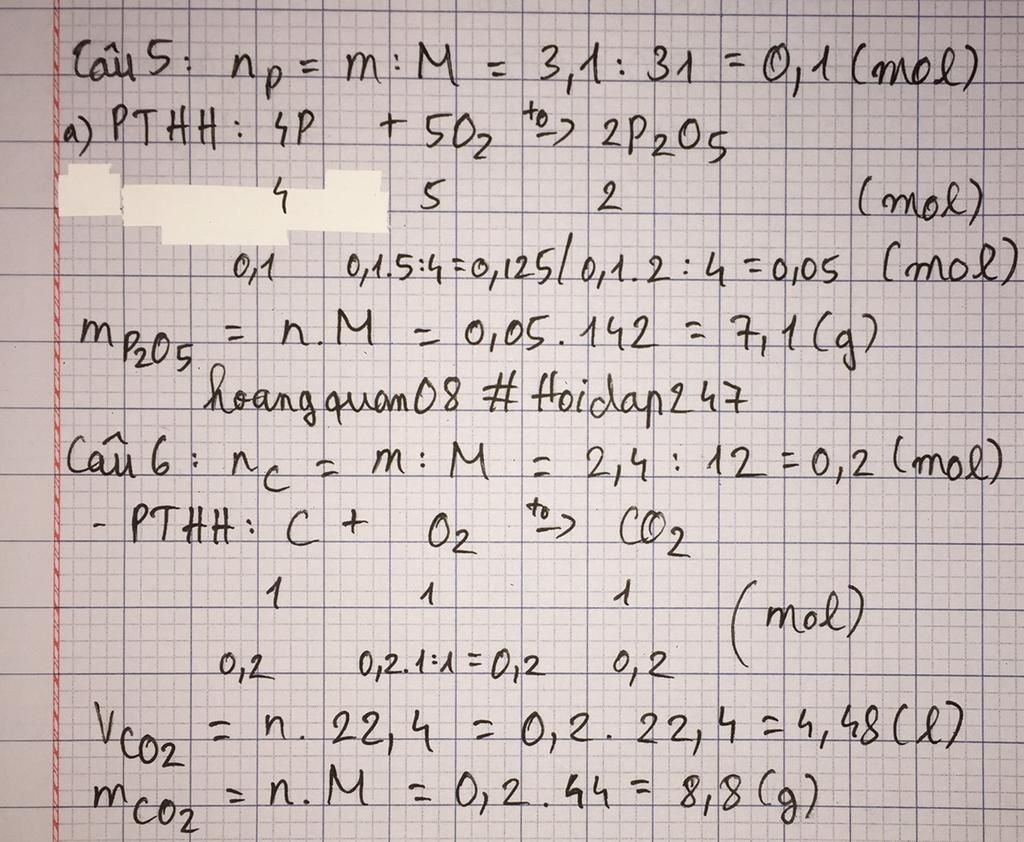 Câu 5: nP = m : M = 3,1 : 31 = 0,1 (mol)
a) PTHH: 4P + 5O2 to→ 2P2O5
4 5 2 (mol)
0,1 0,1.5:4=0,125/0,1.2:4=0,05 (mol)
mP2O5 = n.M = 0,05.142 = 7,1(g)
hoangquan08 # Hoidap247
Câu 6: nC = m : M = 2,4 : 12 = 0,2 (mol)
- PTHH: C + O2 to→ CO2
1 1 1 (mol)
0,2 0,2.1:1=0,2 0,2
VCO2 = n. 22,4 = 0,2. 22,4 = 4,48(l)
mCO2 = n.M = 0,2.44 = 8,8(g)